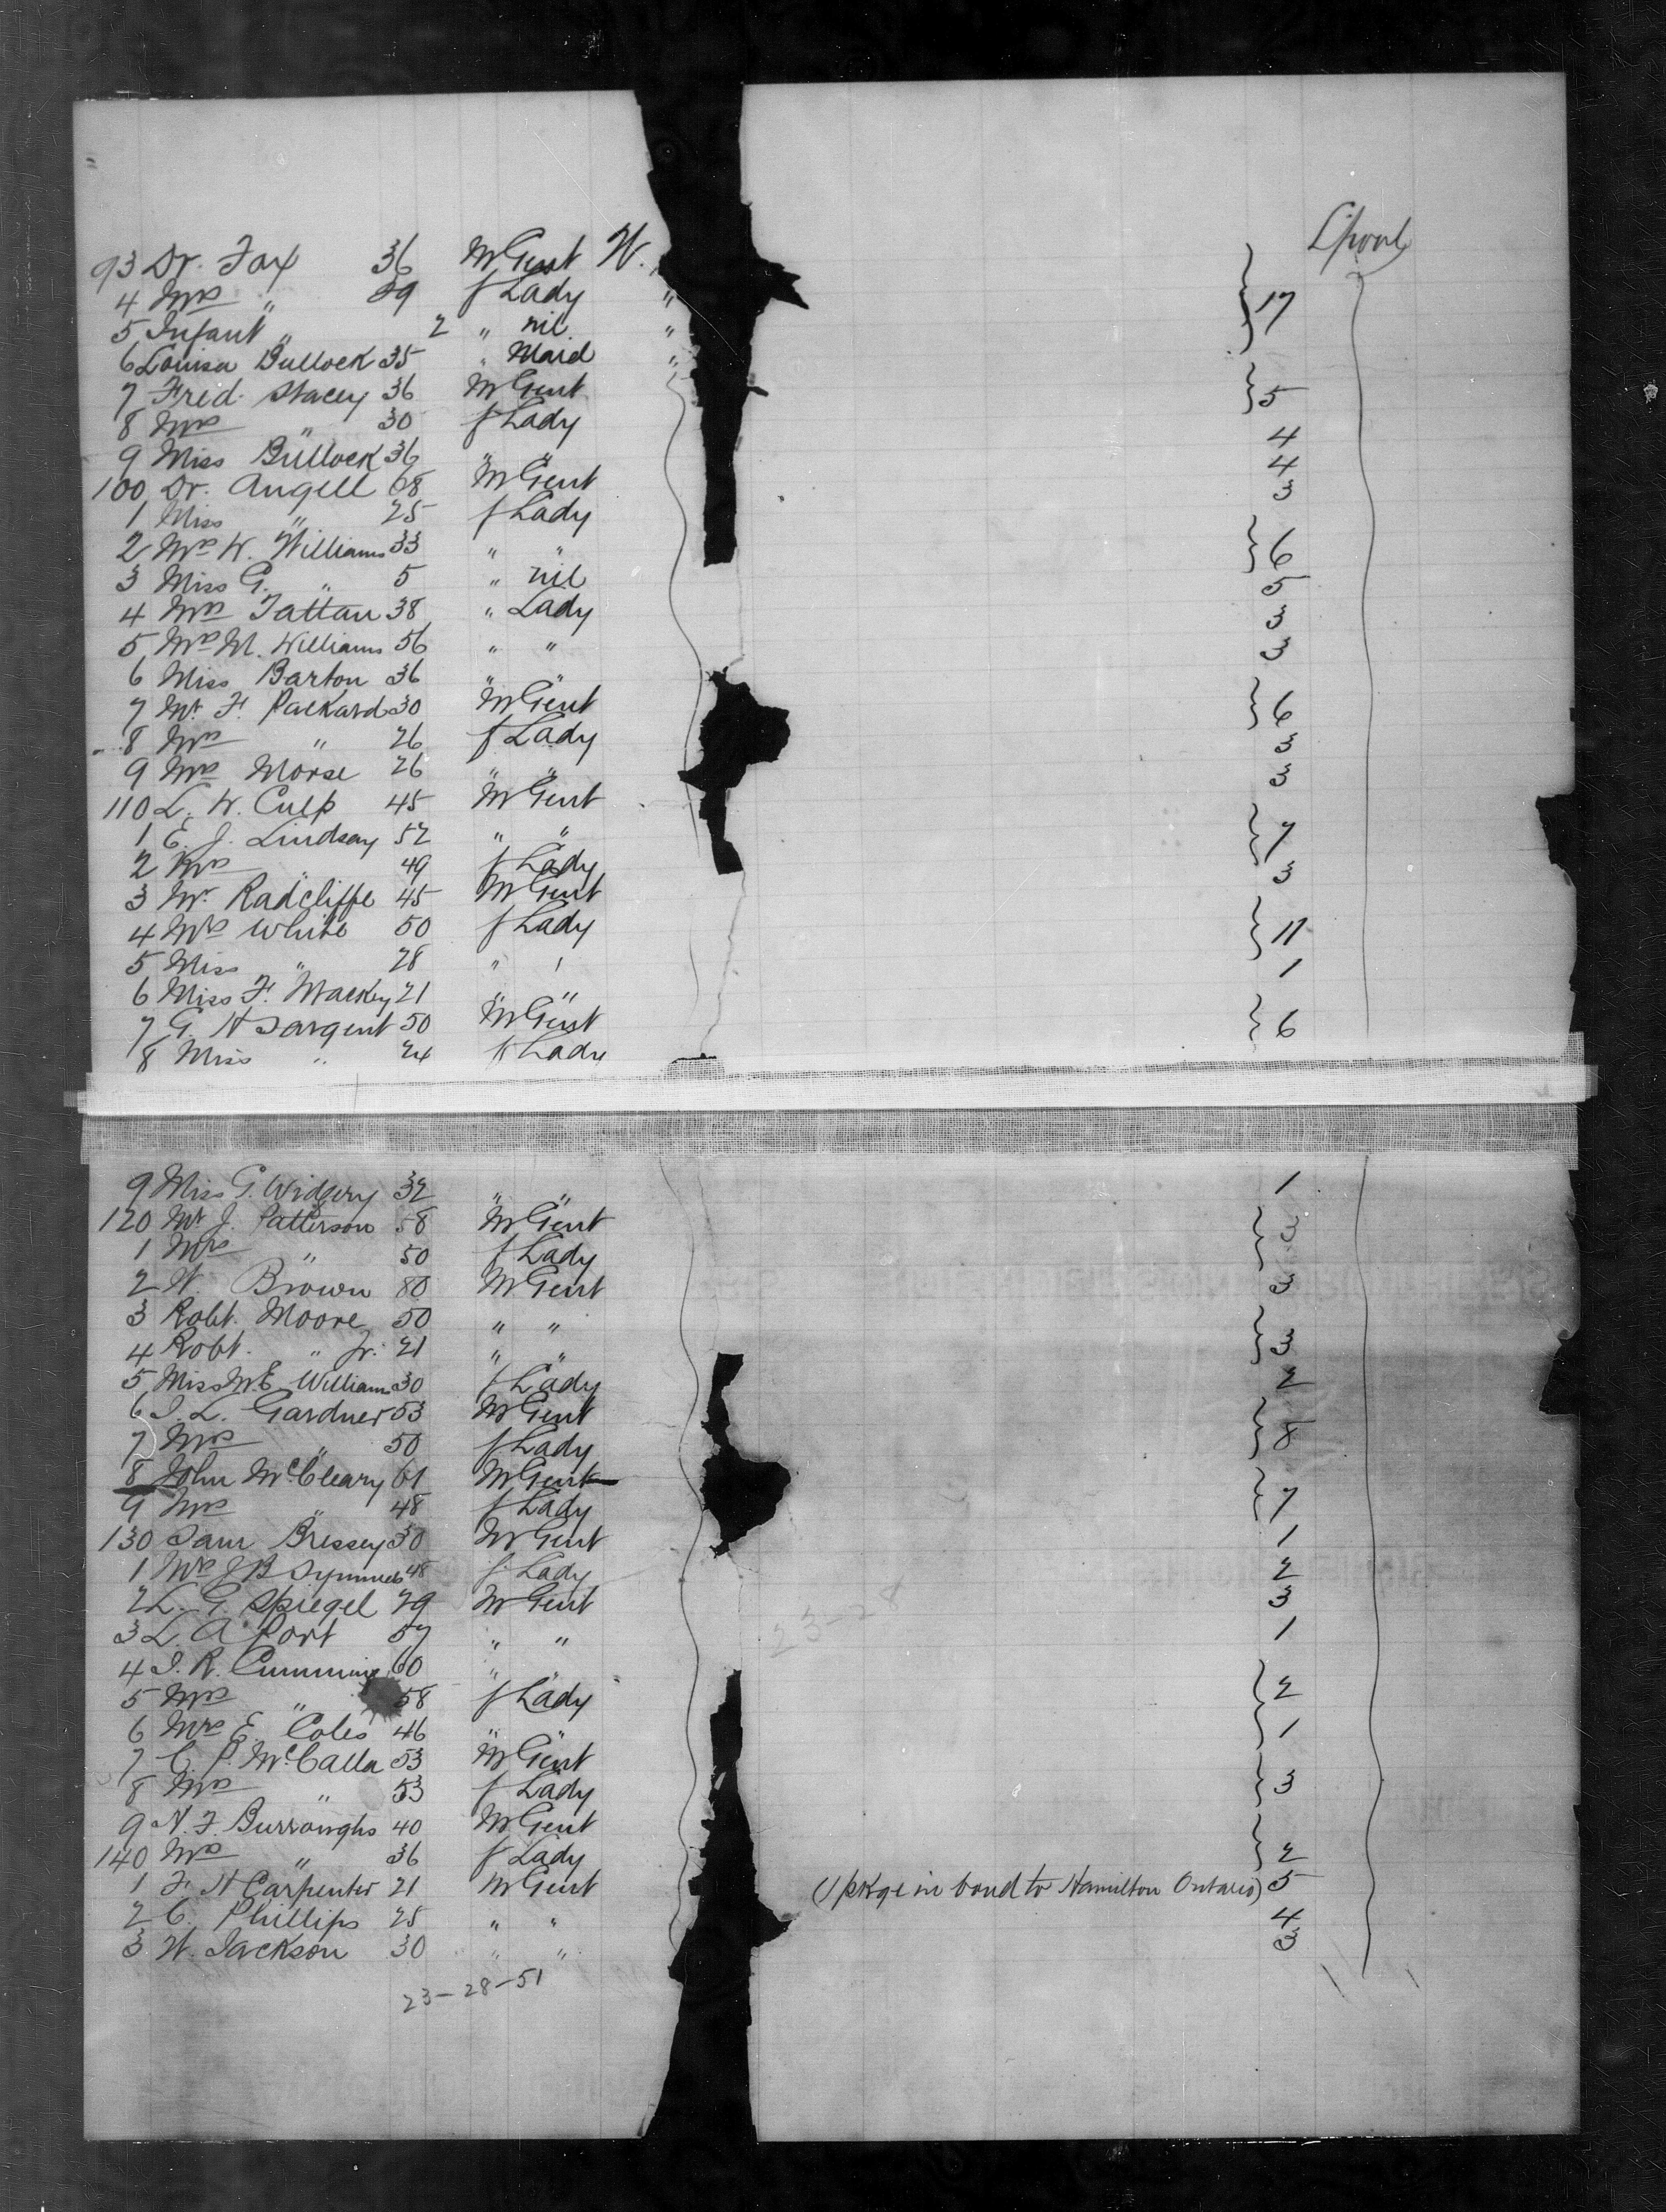 L'pool
93 Dr. Fox 36 M Gent W.
4 Mrs " 29 f Lady " } 17
5 Infant " 2 " nil "
6 Louisa Bullock 35 " Maid "
7 Fred. Stacey 36 M Gent } 5
8 Mrs " 30 f Lady
9 Miss Bullock 36 " " 4
100 Dr. Angell 68 M Gent 4
1 Miss " 25 f Lady 3
2 Mrs W. Williams 33 " " } 6
3 Miss G. " 5 " nil
4 Mrs Tattan 38 " Lady 5
5 Mrs M. Williams 56 " " 3
6 Miss Barton 36 " " 3
7 Mr F. Packard 30 M Gent } 6
8 Mrs " 26 f Lady
9 Mrs Morse 26 " " 3
110 L. W. Culp 45 M Gent 3
1 E. J. Lindsay 52 " " } 7
2 Mrs " 49 f Lady
3 Mr Radcliffe 45 M Gent 3
4 Mrs White 50 f Lady } 11
5 Miss " 28 " "
6 Miss F. Mackey 21 " " 1
7 G. H Sargent 50 M Gent } 6
8 Miss " 24 f Lady
9 Miss G. Widgery 32 " " 1
120 Mr J. Patterson 58 M Gent } 3
1 Mrs " 50 f Lady
2 W. Brown 80 M Gent 3
3 Robt. Moore 50 " " } 3
4 Robt. " Jr. 21 " "
5 Miss M. E Williams 30 f Lady 2
6 J. L. Gardner 53 M Gent } 8
7 Mrs " 50 f Lady
8 John McCleary 61 M Gent } 7
9 Mrs " 48 f Lady
130 Sam Bressey 30 M Gent 1
1 Mrs J B Symmes 48 f Lady 2
2 L. G. Spiegel 29 M Gent 3
3 L. A. Port 57 " " 1
4 J. R. Cumming 60 " " } 2
5 Mrs " 58 f Lady
6 Mrs E. Coles 46 " " } 1
7 C. P. McCalla 53 M Gent } 3
8 Mrs " 53 f Lady
9 N. F. Burroughs 40 M Gent } 2
140 Mrs " 36 f Lady
1 F. H Carpenter 21 M Gent (1 pkge in bond to Hamilton Ontario) 5
2 C. Phillips 25 " " 4
3 W. Jackson 30 " " 3
23-28-51
23-28